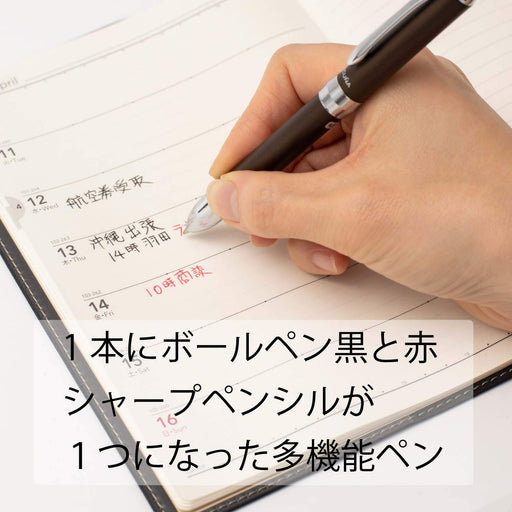 April
11
火・Tue
12
水・Wed
航空券受取
4
13
木・Thu
沖縄出張
14時 羽田
14
金・Fri
10時商談
15
土・Sat
16
日・Sun
1本にボールペン黒と赤
シャープペンシルが
1つになった多機能ペン